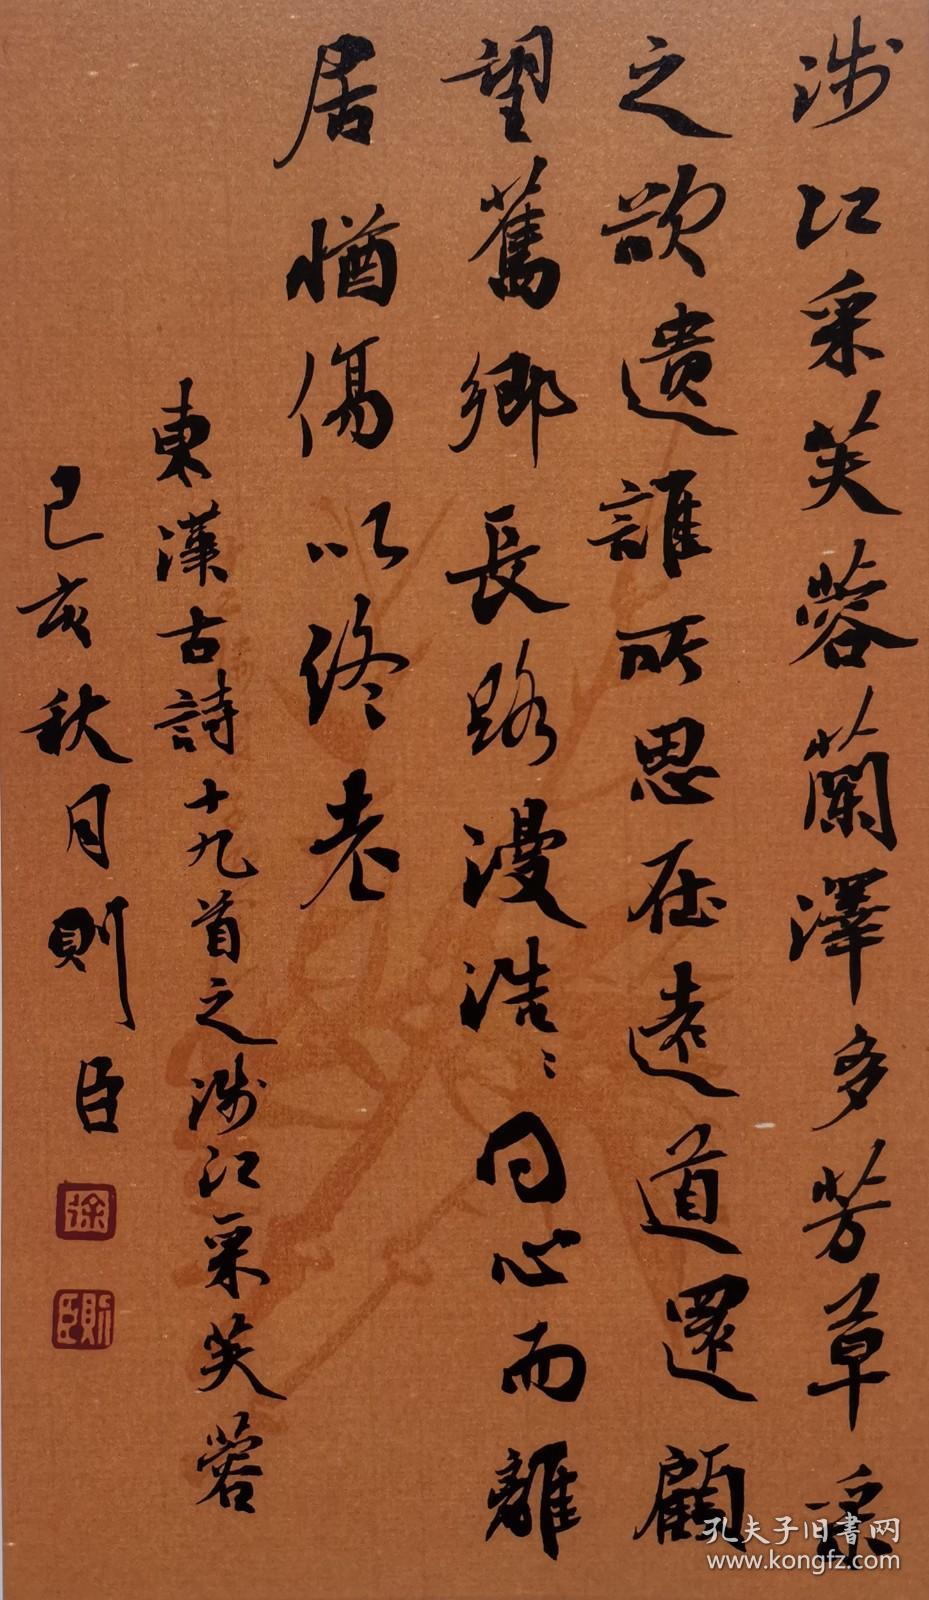 涉江采芙蓉蘭澤多芳草采
之欲遺誰所思在遠道還顧
望舊鄉長路漫浩〻同心而離
居傷以終老
東漢古詩十九首之涉江采芙蓉
己亥秋月則臣
徐
則臣
孔夫子旧書网
www.kongfz.com